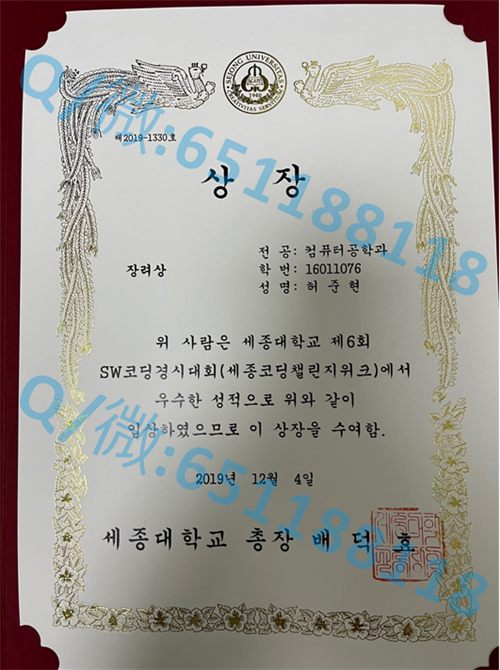 SEJONG UNIVERSITAS
CREATIVITAS SERVITIUM
1940
제2019-1330호
상 장
전 공: 컴퓨터공학과
장려상
학 번: 16011076
성 명: 허 준 현
위 사람은 세종대학교 제6회
SW코딩경시대회(세종코딩챌린지위크)에서
우수한 성적으로 위와 같이
입상하였으므로 이 상장을 수여함.
2019년 12월 4일
세종대학교 총장 배 덕 효
Q/微:651188118
Q/微:651188118